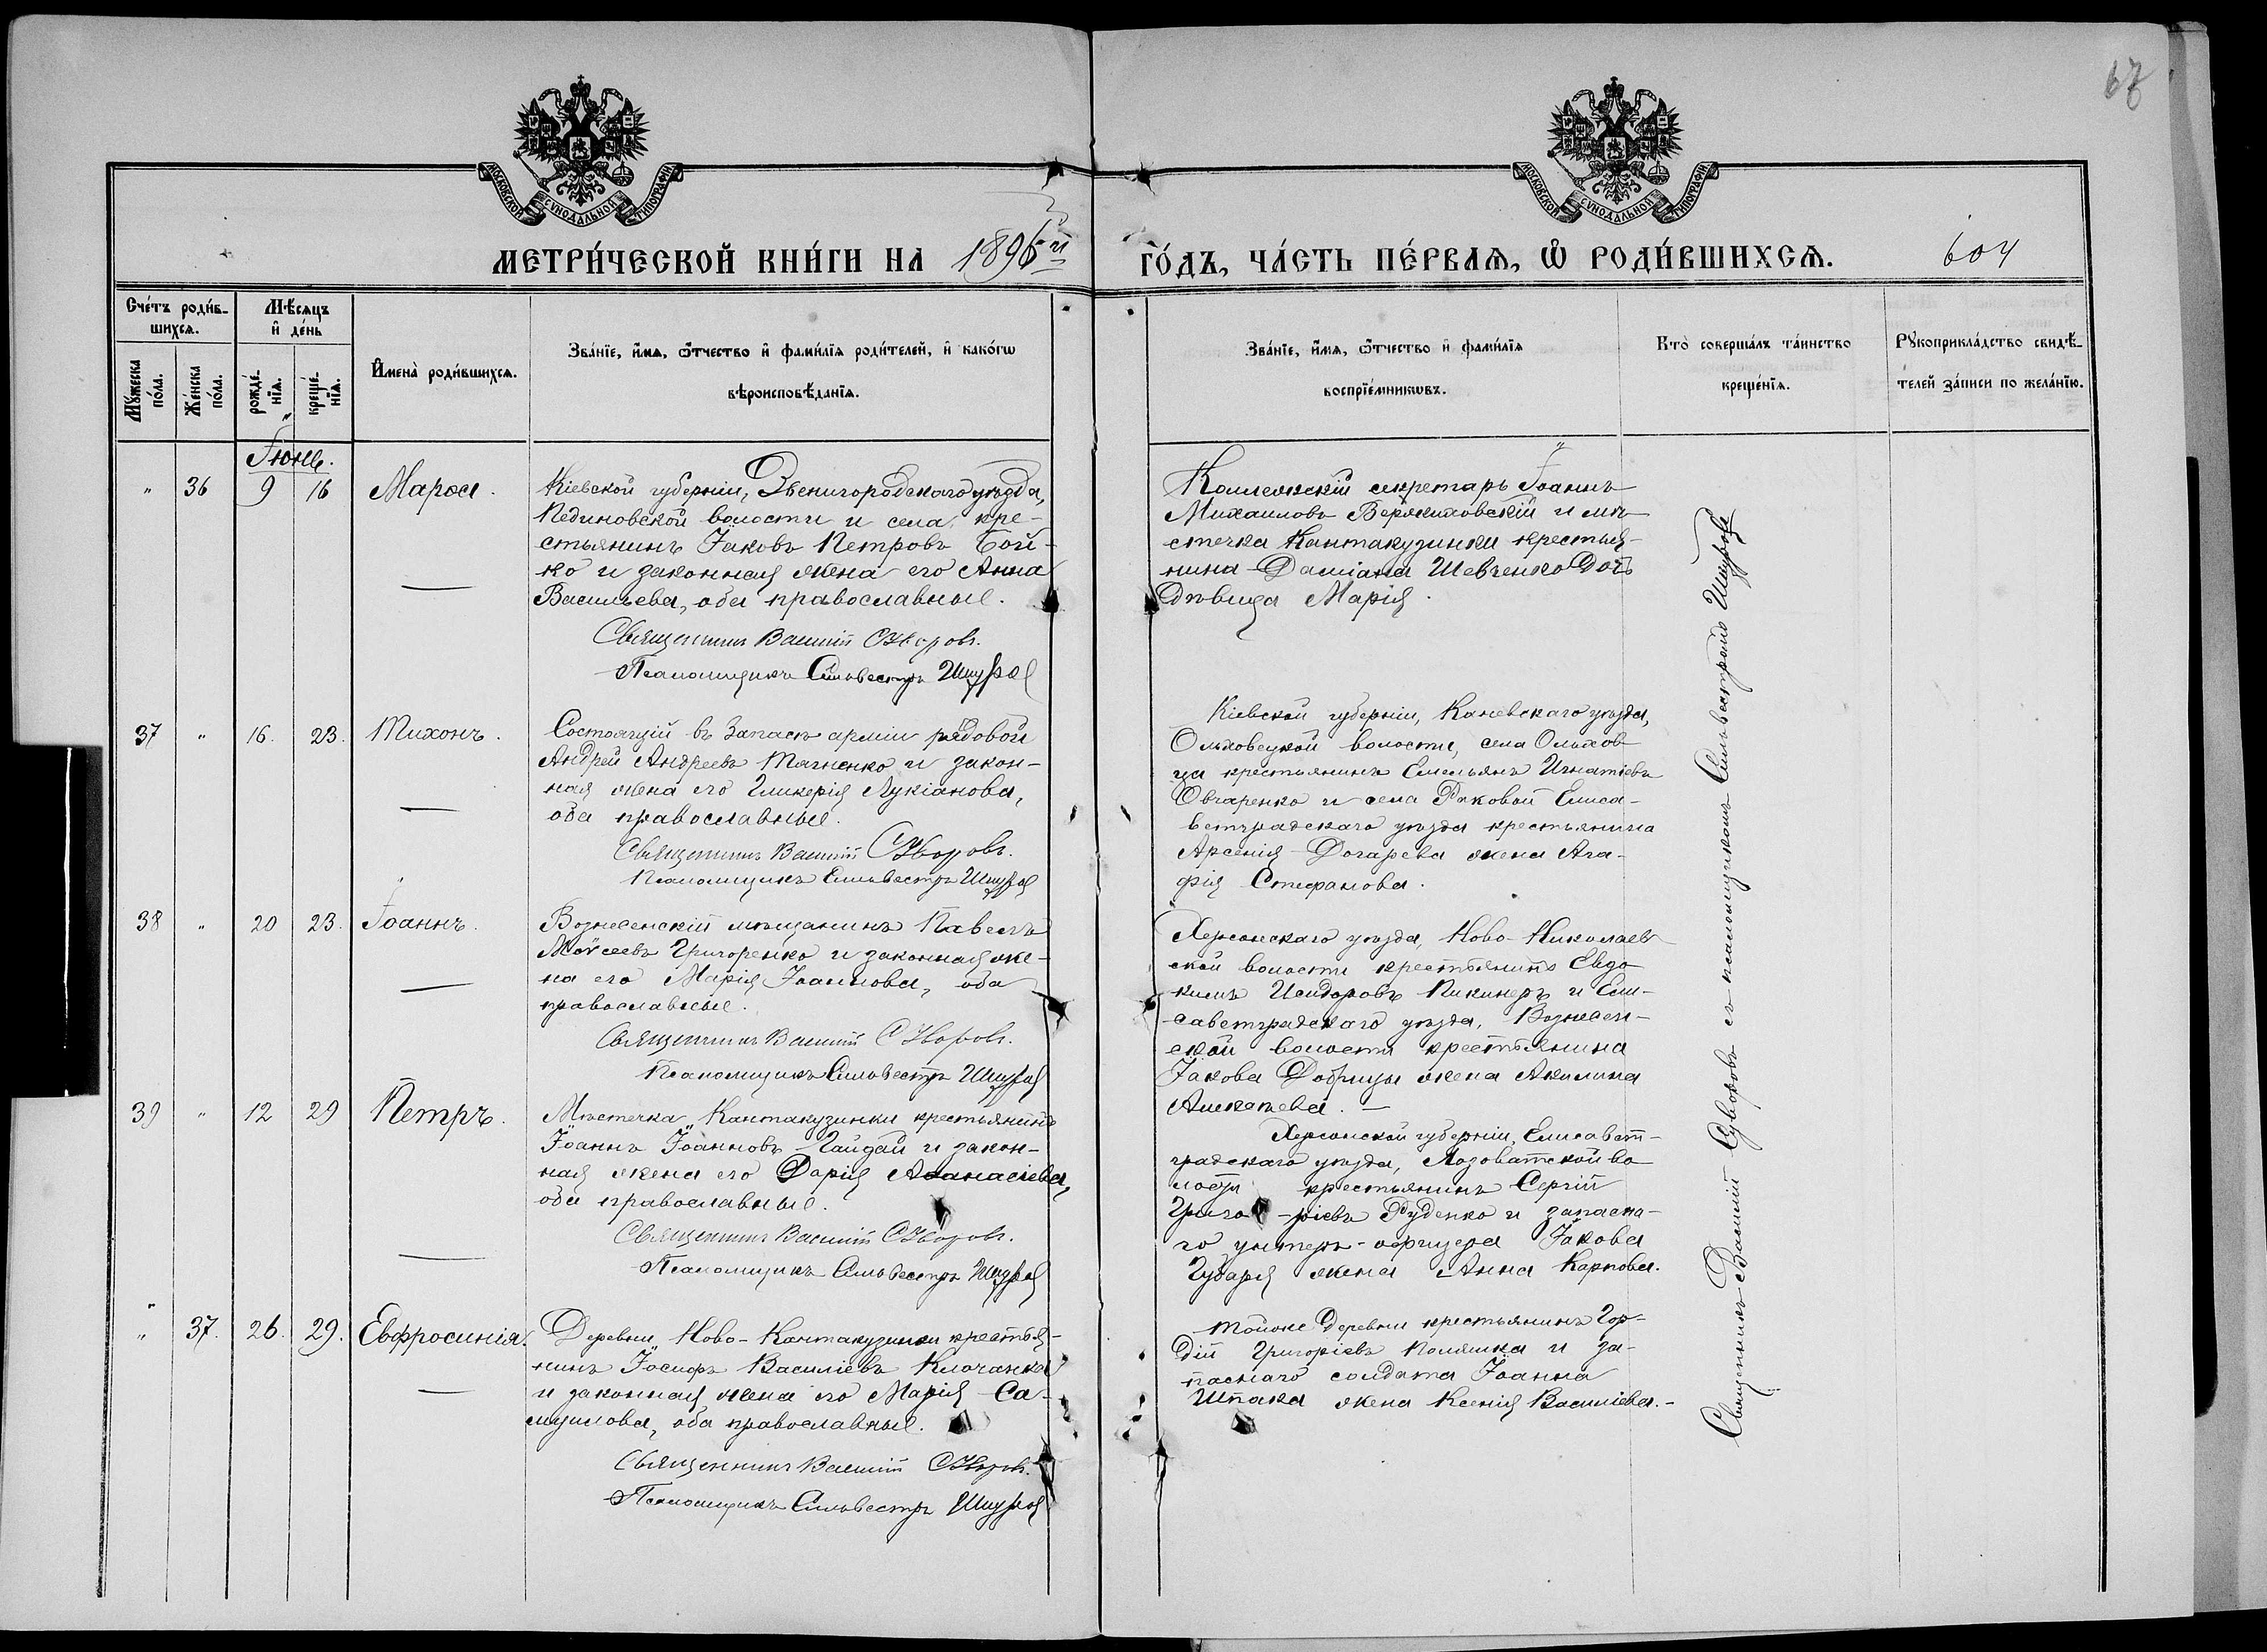 67
МОСКОВСКОЙ СѴНОДАЛЬНОЙ ТИПОГРАФІИ
МОСКОВСКОЙ СѴНОДАЛЬНОЙ ТИПОГРАФІИ
МЕТРИ́ЧЕСКОЙ КНИ́ГИ НА 1896й ГО́ДЪ, ЧА́СТЬ ПЕ́РВАѦ, Ѡ РОДИ́ВШИХСѦ. 604
Сче́тъ роди́в-
шихсѧ.
Мꙋ́жеска по́ла.
Же́нска по́ла.
Мѣ́сѧцъ
и҆ де́нь
рожде́-
нїѧ.
креще́-
нїѧ.
И҆мена̀ роди́вшихсѧ.
Зва́нїе, и҆́мѧ, ѻ҆́тчество и҆ фами́лїѧ роди́телей, и҆ како́гѡ
вѣроисповѣ́данїѧ.
Зва́нїе, и҆́мѧ, ѻ҆́тчество и҆ фами́лїѧ
воспрїе́мникѡвъ.
Кто̀ соверша́лъ та́инство
креще́нїѧ.
Рꙋкоприкла́дство свидѣ́-
телей за́писи по жела́нїю.
Іюнь.
" 36 9 16 Марѳа.
Кіевской губерніи, Звенигородскаго уѣзда,
Пединовской волости и села, кре-
стьянинъ Іаковъ Петровъ Бой-
ко и законная жена его Анна
Васильева, оба православные.
Священникъ Василій Суворовъ.
Псаломщикъ Сильвестръ
Коллежскій секретарь Іоаннъ
Михаиловъ Вержиховскій и мѣ-
стечка Кантакузинки крестья-
нина Даміана Шевченко дочь
дѣвица Марія.
37 " 16. 23. Тихонъ.
Состоящій въ запасѣ арміи рядовой
Андрей Андреевъ Тягненко и закон-
ная жена его Гликерія Лукіанова,
оба православные.
Священникъ Василій Суворовъ.
Псаломщикъ Сильвестръ
Кіевской губерніи, Каневскаго уѣзда,
Ольховецкой волости, села Ольхов-
ца крестьянинъ Емельянъ Игнатіевъ
Овчаренко и села Раковой Елиса-
ветградскаго уѣзда крестьянина
Арсенія Догарева жена Ага-
фія Стефанова.
38 " 20 23. Іоаннъ.
Вознесенскій мѣщанинъ Павелъ
Моѵсеевъ Григоренко и законная же-
на его Марія Іоаннова, оба
православные.
Священникъ Василій Суворовъ.
Псаломщикъ Сильвестръ
Херсонскаго уѣзда, Ново-Николаев-
ской волости крестьянинъ Евдо-
кимъ Исидоровъ Пикинеръ и Ели-
саветградскаго уѣзда, Вознесен-
ской волости крестьянина
Іакова Добрицы жена Акилина
Алексѣева. —
39 " 12 29 Петръ.
Мѣстечка Кантакузинки крестьянинъ
Іоаннъ Іоанновъ Гайдай и закон-
ная жена его Дарія Аѳанасіева,
оба православные.
Священникъ Василій Суворовъ.
Псаломщикъ Сильвестръ
Херсонской губерніи, Елисавет-
градскаго уѣзда, Лозоватской во-
лости крестьянинъ Сергій
Григо-ріевъ Руденко и запасна-
го унтеръ-офицера Іакова
Губаря жена Анна Карпова.
" 37. 26. 29. Евфросинія.
Деревни Ново-Кантакузинки крестья-
нинъ Іосифъ Василіевъ Клочанко
и законная жена его Марія Са-
муилова, оба православные.
Священникъ Василій Суворовъ.
Псаломщикъ Сильвестръ
Тойже деревни крестьянинъ Гор-
дій Григоріевъ Полянка и за-
паснаго солдата Іоанна
Шпака жена Ксенія Василіева.-
Священникъ Василій Суворовъ съ псаломщикомъ Сильвестромъ